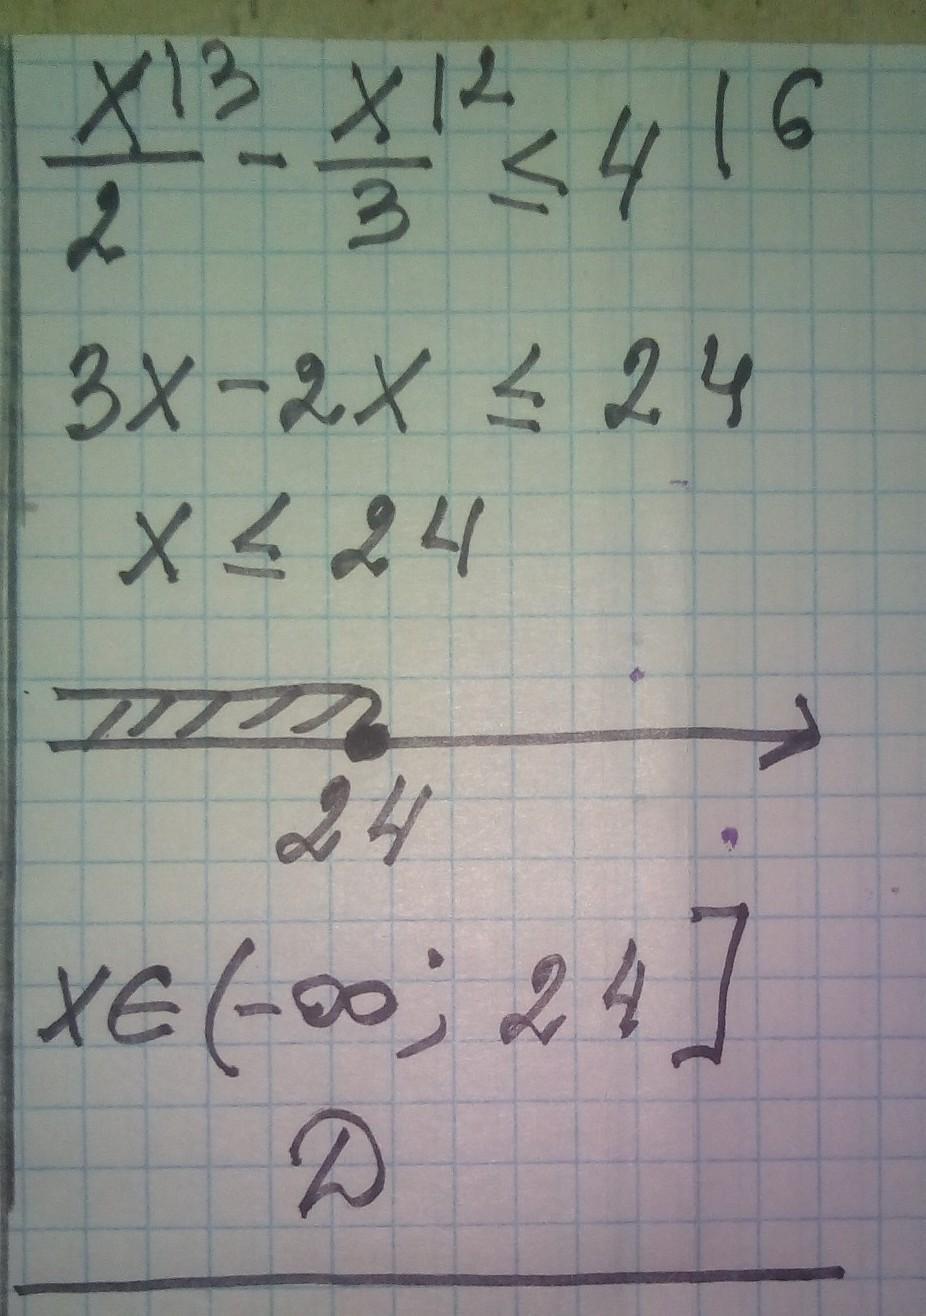 x|3/2 - x|2/3 ≤ 4 | 6
3x - 2x ≤ 24
x ≤ 24
24
x∈(-∞; 24]
D